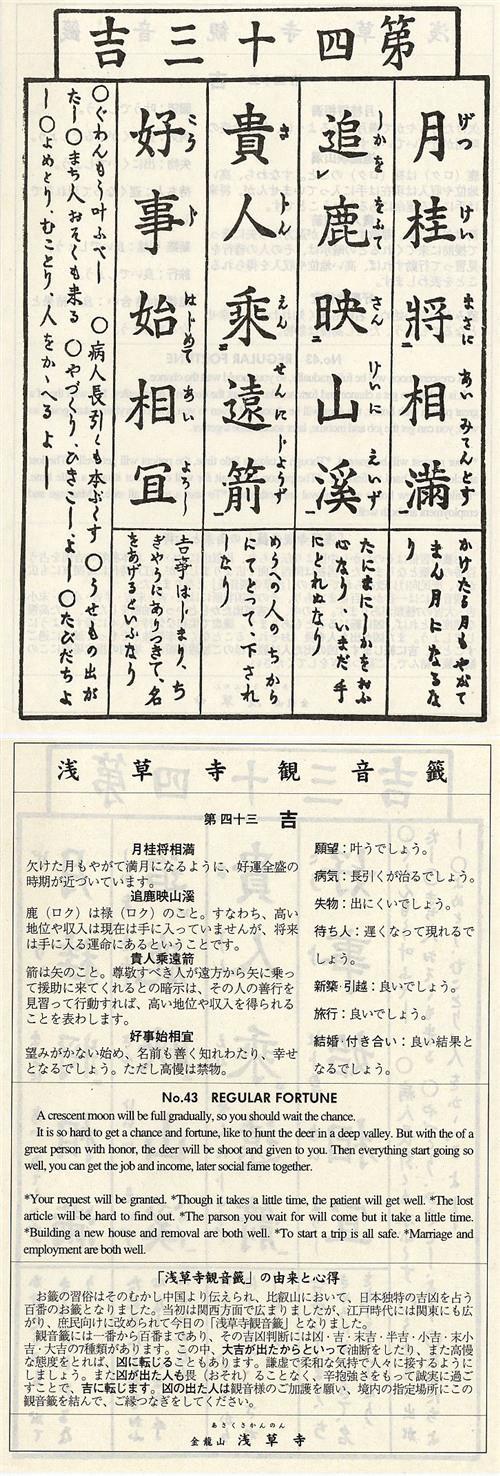 第四十三吉
月桂將相滿
げつ けい まさに あい みてんとす
追鹿映山溪
しかををふて さん けいに えいず
貴人乘遠箭
き じん えん せんにじょうず
好事始相宜
こう じ はじめて あい よろし
かけたる月もやがて
まん月になるな
り
たにまにしかをおふ
心なり、いまだ手
にとれぬなり
めうへの人のちから
にてとつて下され
しなり
吉事はじまり、ち
ぎやうにありつきて、名
をあげるといふなり
〇ぐわんもう叶ふべし 〇病人長引くも本ぷくす 〇うせもの出が
たし〇まち人おそくも来る 〇やづくり、ひきこし、よし 〇たびだちよ
し〇よめとり、むことり人をかゝへる よし
浅草寺観音籤
第四十三 吉
月桂将相満
欠けた月もやがて満月になるように、好運全盛の
時期が近づいています。
追鹿映山溪
鹿（ロク）は禄（ロク）のこと。すなわち、高い
地位や収入は現在は手に入っていませんが、将来
は手に入る運命にあるということです。
貴人乗遠箭
箭は矢のこと。尊敬すべき人が遠方から矢に乗っ
て援助に来てくれるとの暗示は、その人の善行を
見習って行動すれば、高い地位や収入を得られる
ことを表わします。
好事始相宜
望みがかない始め、名前も善く知れわたり、幸せ
となるでしょう。ただし高慢は禁物。
願望：叶うでしょう。
病気：長引くが治るでしょう。
失物：出にくいでしょう。
待ち人：遅くなって現れるで
しょう。
新築･引越：良いでしょう。
旅行：良いでしょう。
結婚･付き合い：良い結果と
なるでしょう。
No.43 REGULAR FORTUNE
A crescent moon will be full gradually, so you should wait the chance.
It is so hard to get a chance and fortune, like to hunt the deer in a deep valley. But with the of a
great person with honor, the deer will be shoot and given to you. Then everything start going so
well, you can get the job and income, later social fame together.
*Your request will be granted. *Though it takes a little time, the patient will get well. *The lost
article will be hard to find out. *The parson you wait for will come but it take a little time.
*Building a new house and removal are both well. *To start a trip is all safe. *Marriage and
employment are both well.
「浅草寺観音籤」の由来と心得
お籤の習俗はそのむかし中国より伝えられ、比叡山において、日本独特の吉凶を占う
百番のお籤となりました。当初は関西方面で広まりましたが、江戸時代には関東にも広
がり、庶民向けに改められて今日の「浅草寺観音籤」となりました。
観音籤には一番から百番まであり、その吉凶判断には凶・吉・末吉・半吉・小吉・末小
吉・大吉の7種類があります。この中、大吉が出たからといって油断をしたり、また高慢
な態度をとれば、凶に転じることもあります。謙虚で柔和な気持で人々に接するように
しましょう。また凶が出た人も畏（おそれ）ることなく、辛抱強さをもって誠実に過ご
すことで、吉に転じます。凶の出た人は観音様のご加護を願い、境内の指定場所にこの
観音籤を結んで、ご縁つなぎをしてください。
あさくさかんのん
金龍山 浅草寺